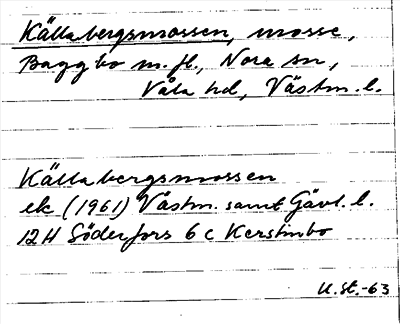 Källabergsmossen, mosse,
Baggbo m. fl., Nora sn,
Våla hd, Västm. l.
Källabergsmossen
ek (1961) Västm. samt Gävl. l.
12H Söderfors 6 c Kerstinbo
U.St.-63